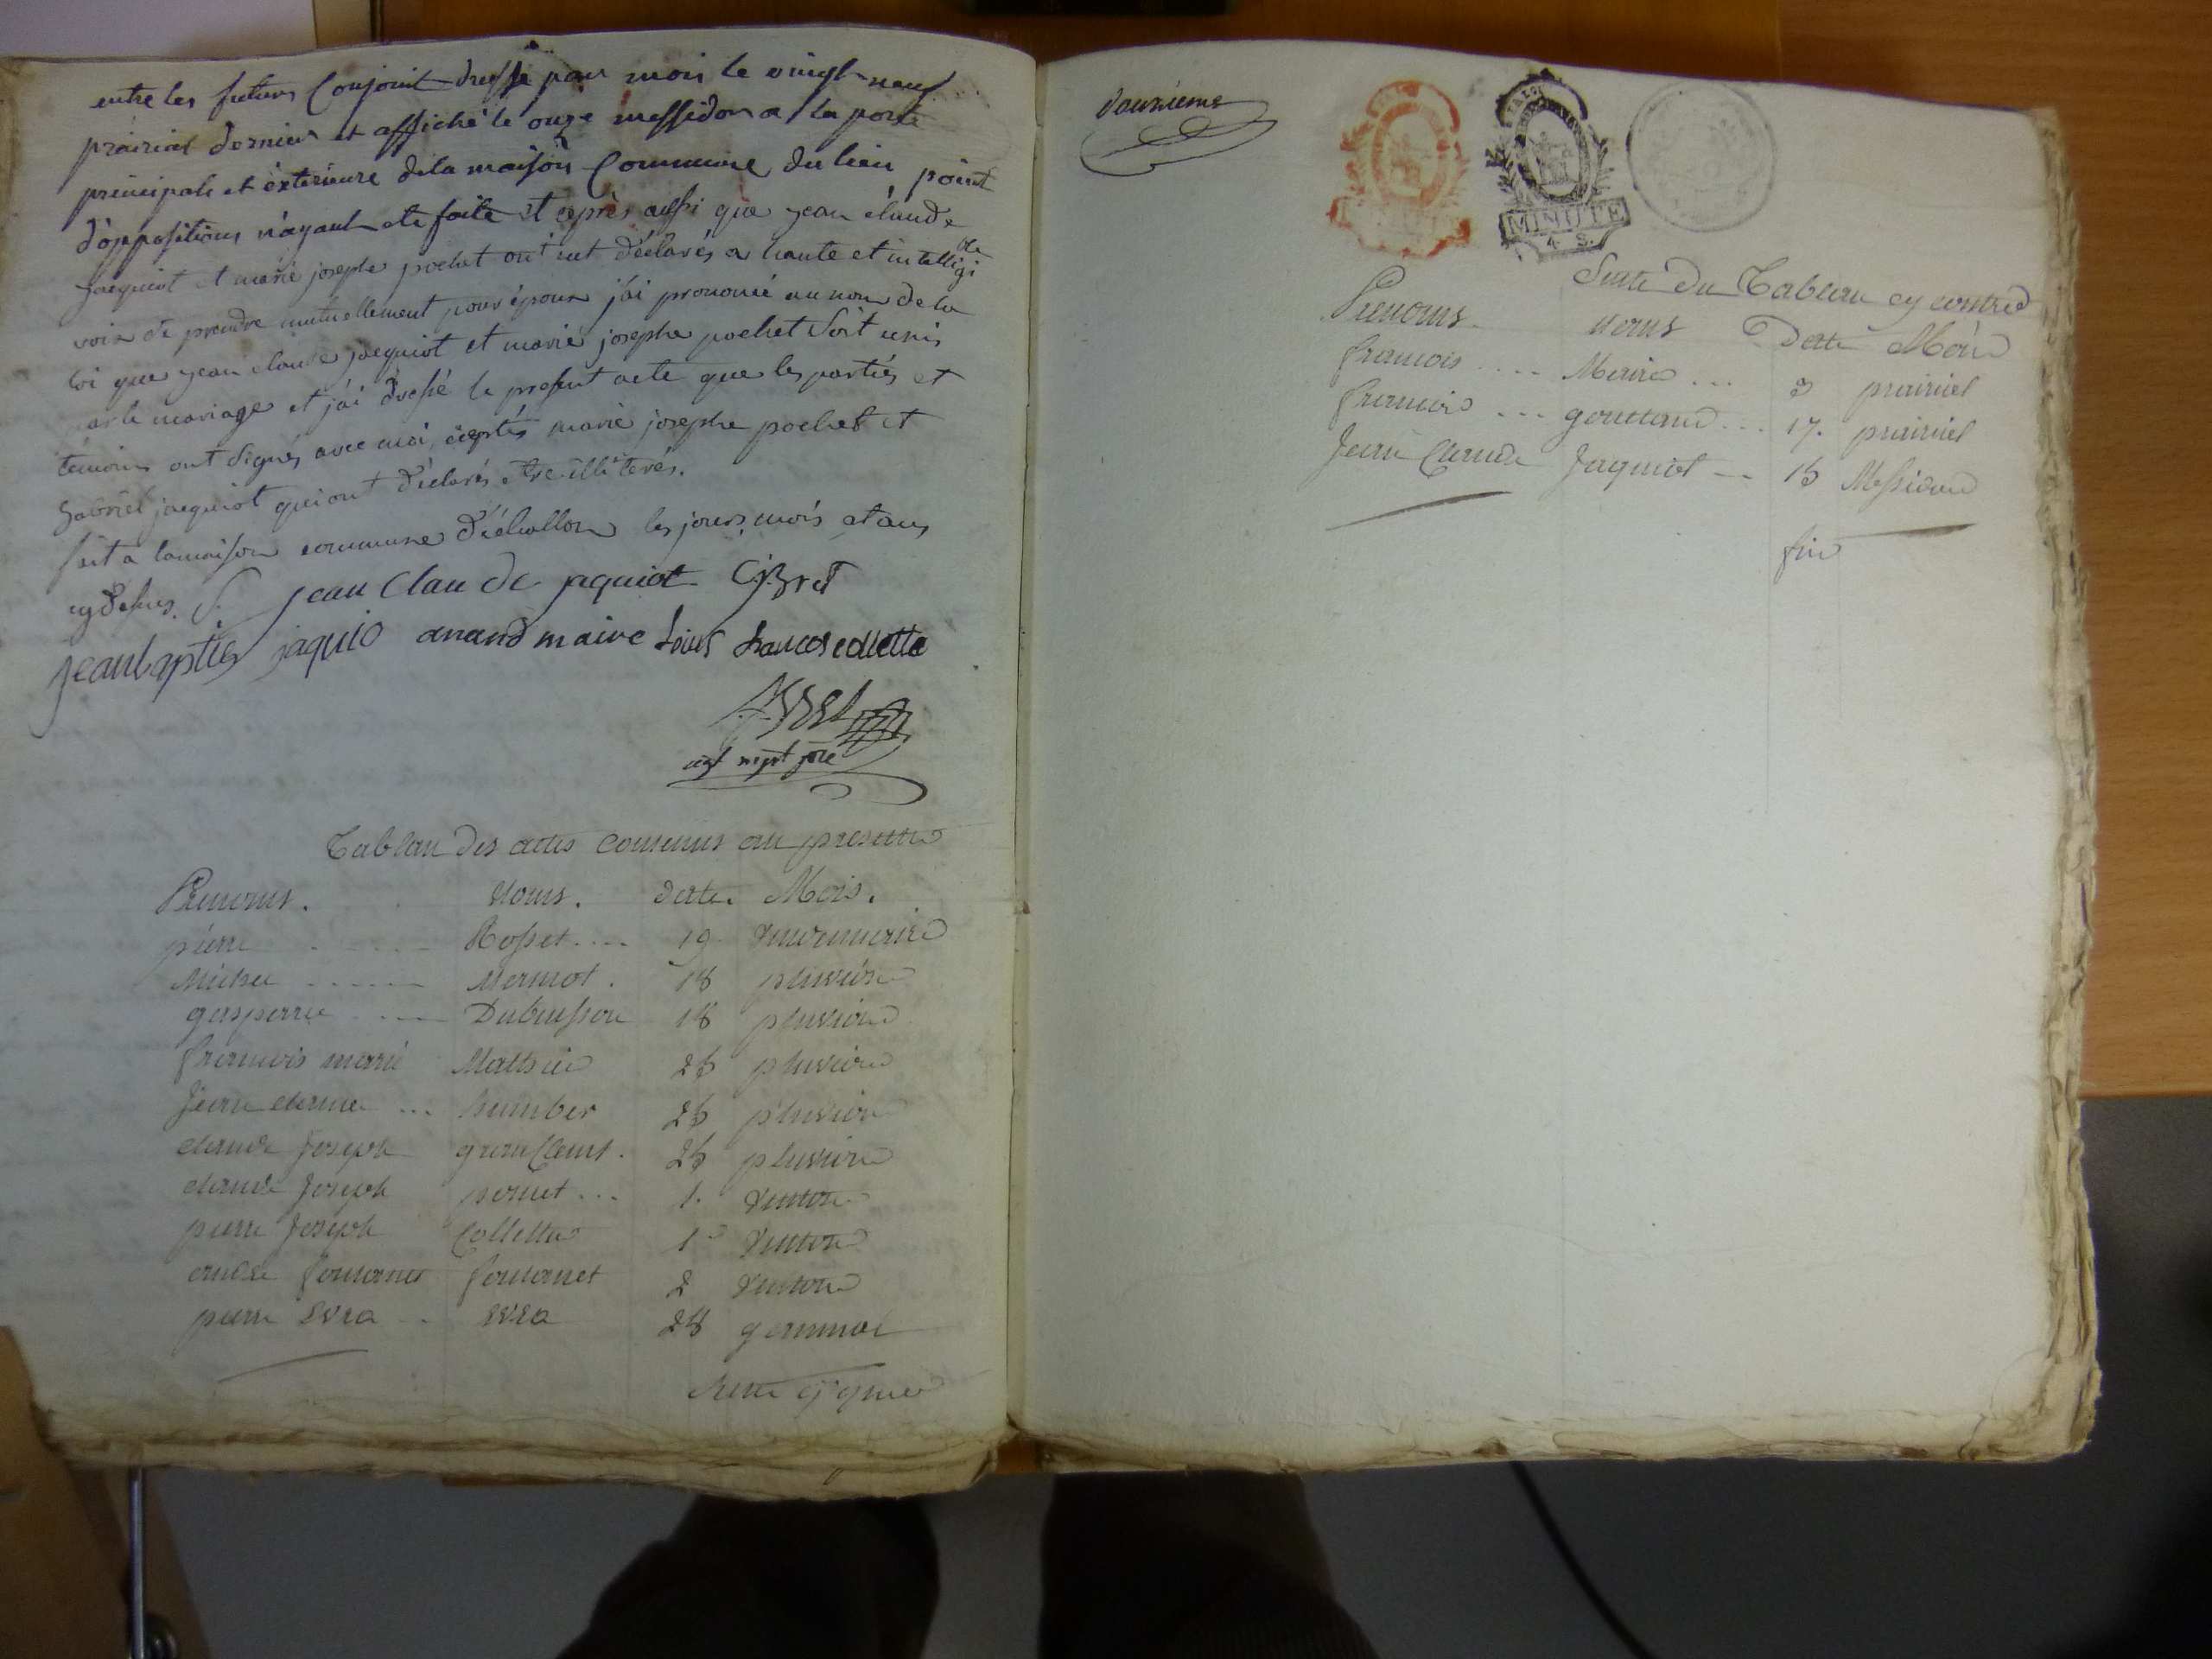 entre les futurs Conjoint dressé par moi le vingt-neuf
prairial dernier et affiché le onze messidor a la porte
principale et éxterieure de la maison Commune du lieu point
d'oppositions n'ayant ete faite et après aussi que jean claude
jacquiot et marie josephe pochet ont eut déclarés a haute et intelligi
ble
voix de prendre mutuellement pour épour j'ai prononcé au nom de la
loi que jean claude jacquiot et marie josephe pochet soit unis
par le mariage et j'ai dressé le present acte que les partiés et
témoins ont signés avec moi, éxeptés marie josephe pochet et
gabriel jacquiot qui ont déclarés etre illiterés.
fait a la maison commune d'échallon les jours, mois et ans
cy desus.
jean Claude jaquiot
jean baptiste jaquio anand maire Louis francois collette
Tableau des actes contenus au presente
Prenoms. Noms. datte. Mois.
pierre Rosset.... 19 vendemiaire
Michel ...... Mermot. 18 pluviose
gasparre .... Dubuisson 18 pluviose
francois marie Mathieu 25 pluviose
Jean claude ... humber 25 pluviose
claude Joseph grandClement. 25 pluviose
claude Joseph pernet... 1. ventose
pierre Joseph Collette 1 ventose
andre fontanet fontanet 2 ventose
pierre Evra .. Evra 28 germinal
douzieme
MINUTE
4 S.
Suite du Tableau cy contre
Prenoms. Noms Datte Mois
francois .... Maire ... 3 prairiel
francois ... gouttand... 17. prairiel
Jean Claude Jaquiot -- 15 Messidor
fin